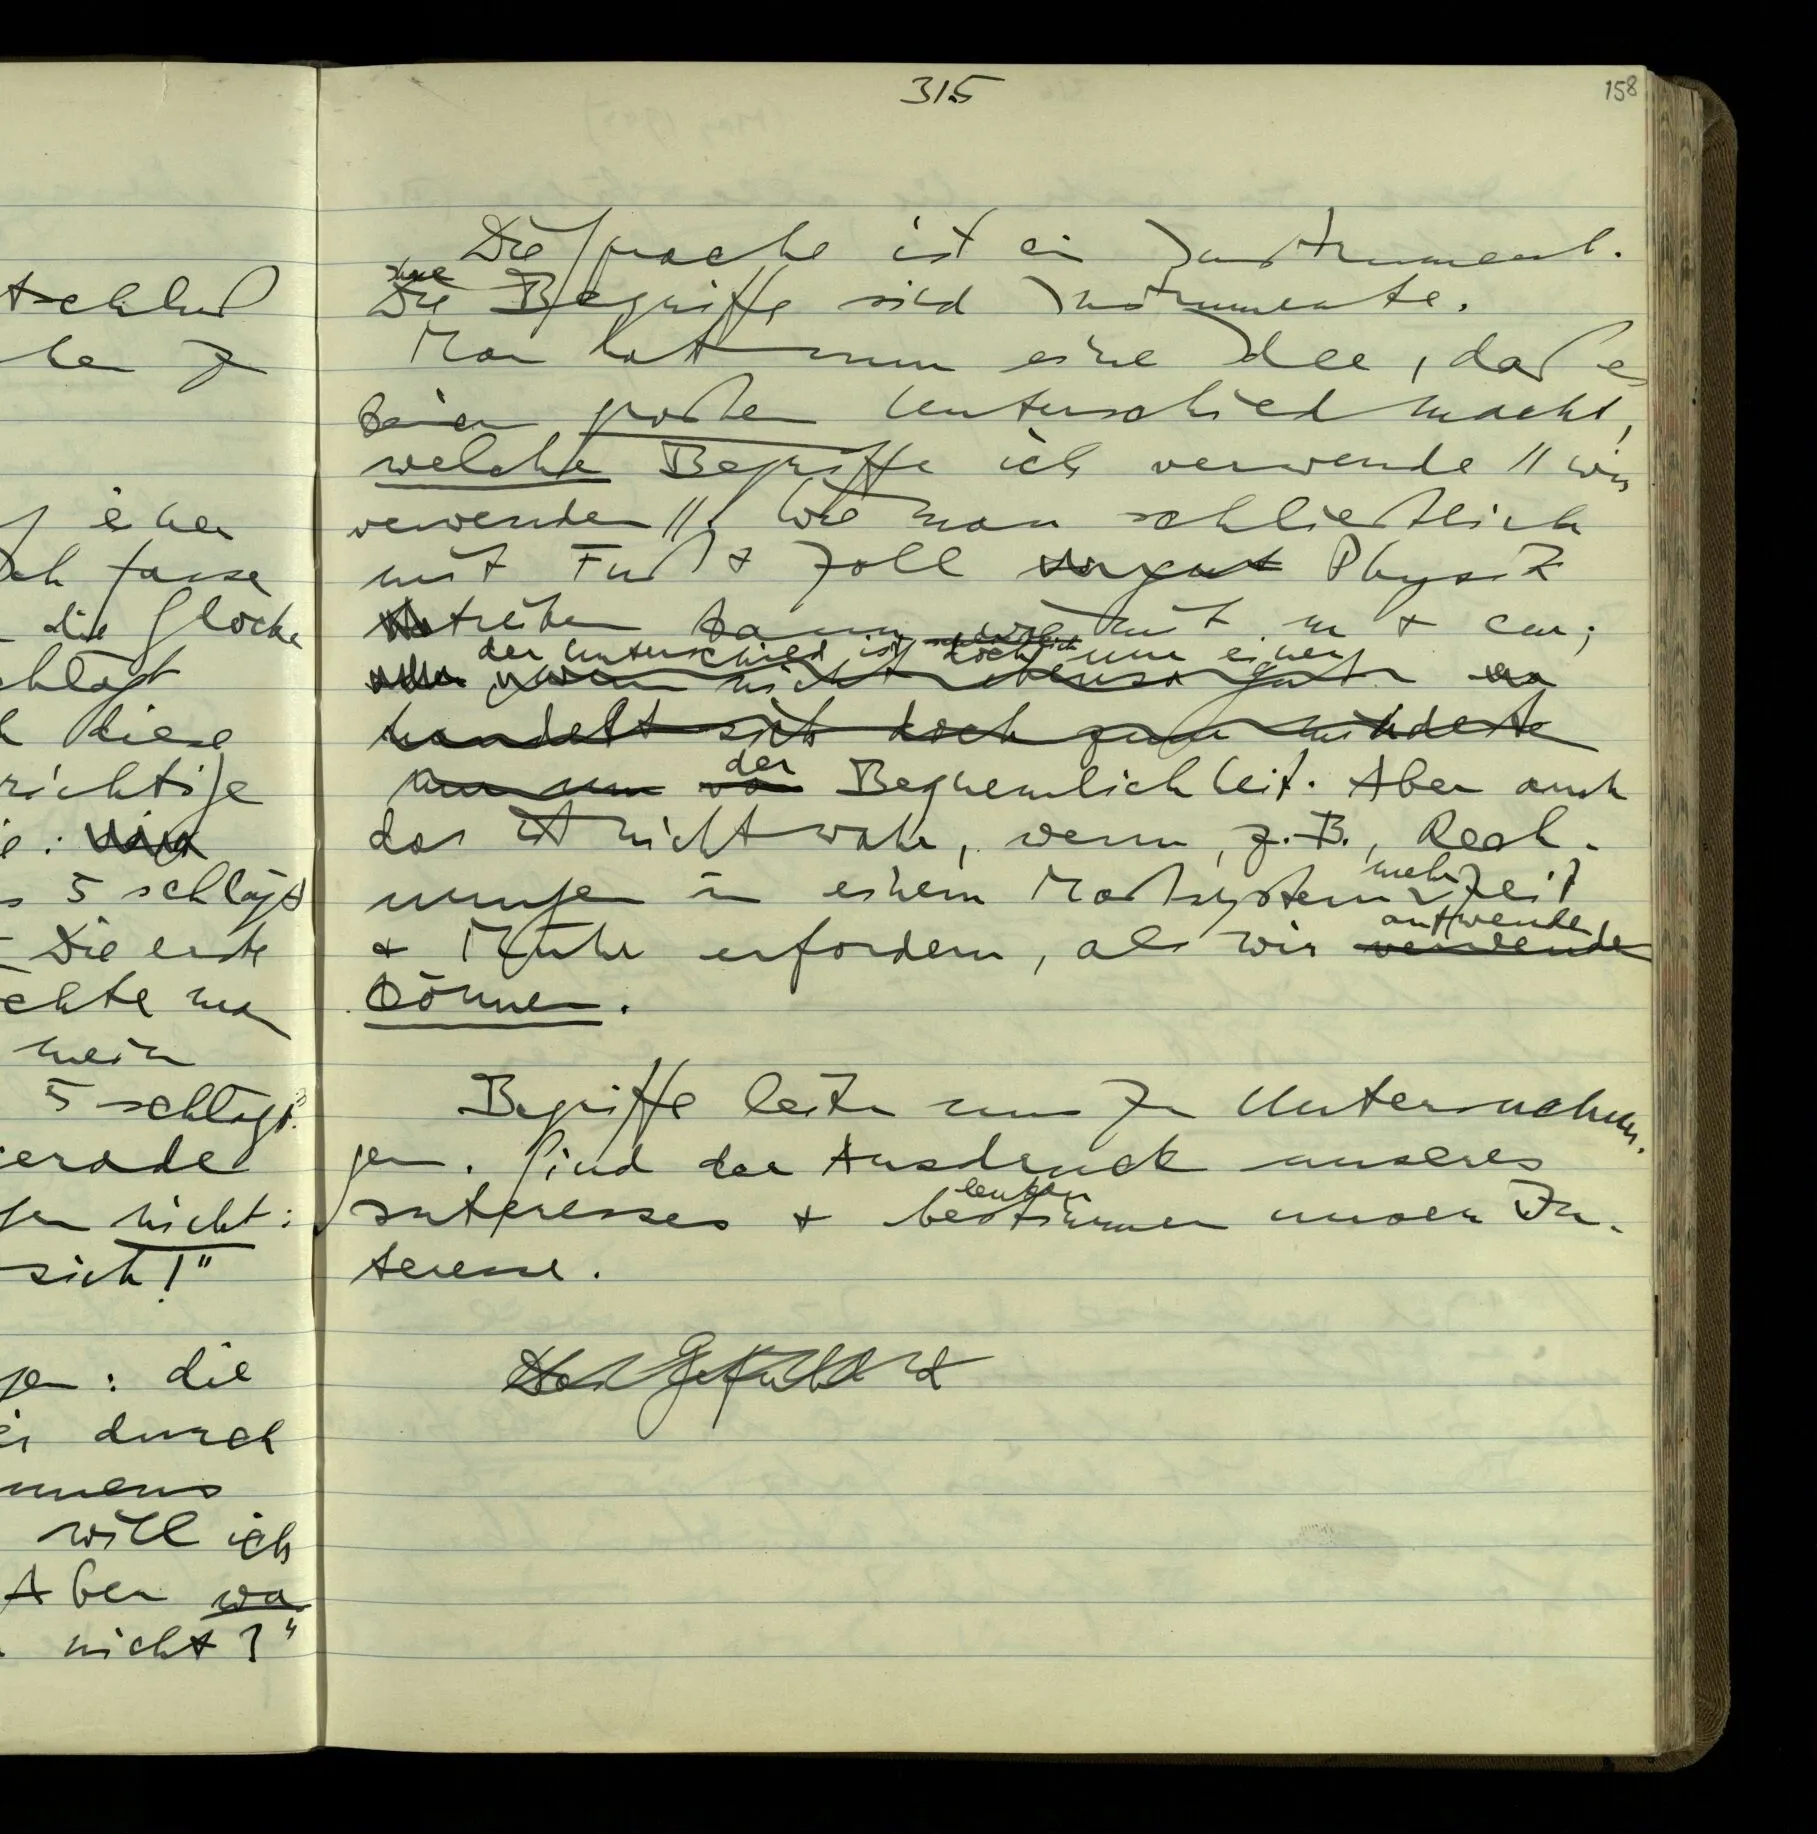 315
158
Die Sprache ist ein Instrument.
Ihre
Die Begriffe sind Instrumente.
Man hat nun eine Idee, daß es
keinen großen Unterschied macht,
welche Begriffe ich verwende // wir
verwenden //. Wie man schließlich
mit Fuß & Zoll Physik
treiben kann, wie mit m & cm;
der Unterschied ist doch nur einer
nicht ebensogut
handelt sich doch zum mindesten
der
Bequemlichkeit. Aber auch
das ist nicht wahr, wenn, z.B., Rech-
mehr
nungen in einem Maßsystem Zeit
aufwenden
& Mühe erfordern, als wir verwenden
können.
Begriffe leiten uns zu Untersuchun-
gen. Sind der Ausdruck unseres
lenken
Interesses & bestimmen unser In-
teresse.
tschluß
zu
einen
ich fasse
die Glocke
schlägt
diese
richtige
5 schlägt
Die erste
chte man
mein
5 schlägt
gerade
nicht:
sich!"
: die
durch
will ich
Aber
nicht?"